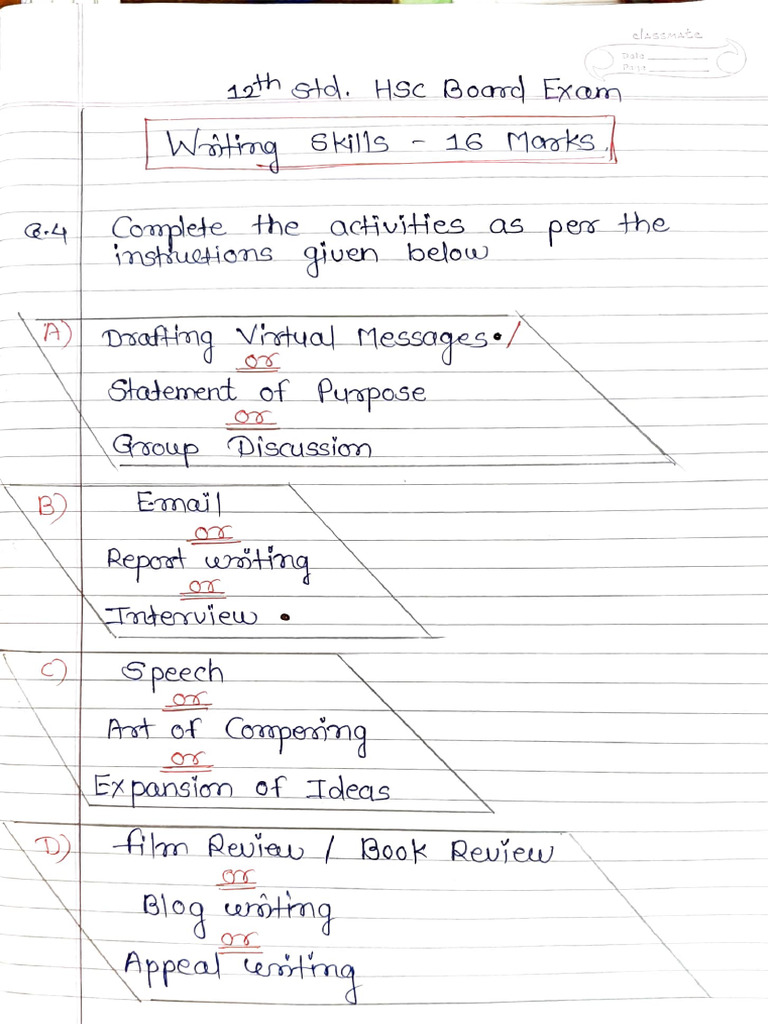 classmate
Date
Page
12th Std. HSC Board Exam
Writing Skills - 16 Marks.
Q.4 Complete the activities as per the
instructions given below
A) Drafting Virtual Messages. /
or
Statement of Purpose
or
Group Discussion
B) Email
or
Report writing
or
Interview .
C) Speech
or
Art of Compering
or
Expansion of Ideas
D) film Review / Book Review
or
Blog writing
or
Appeal writing